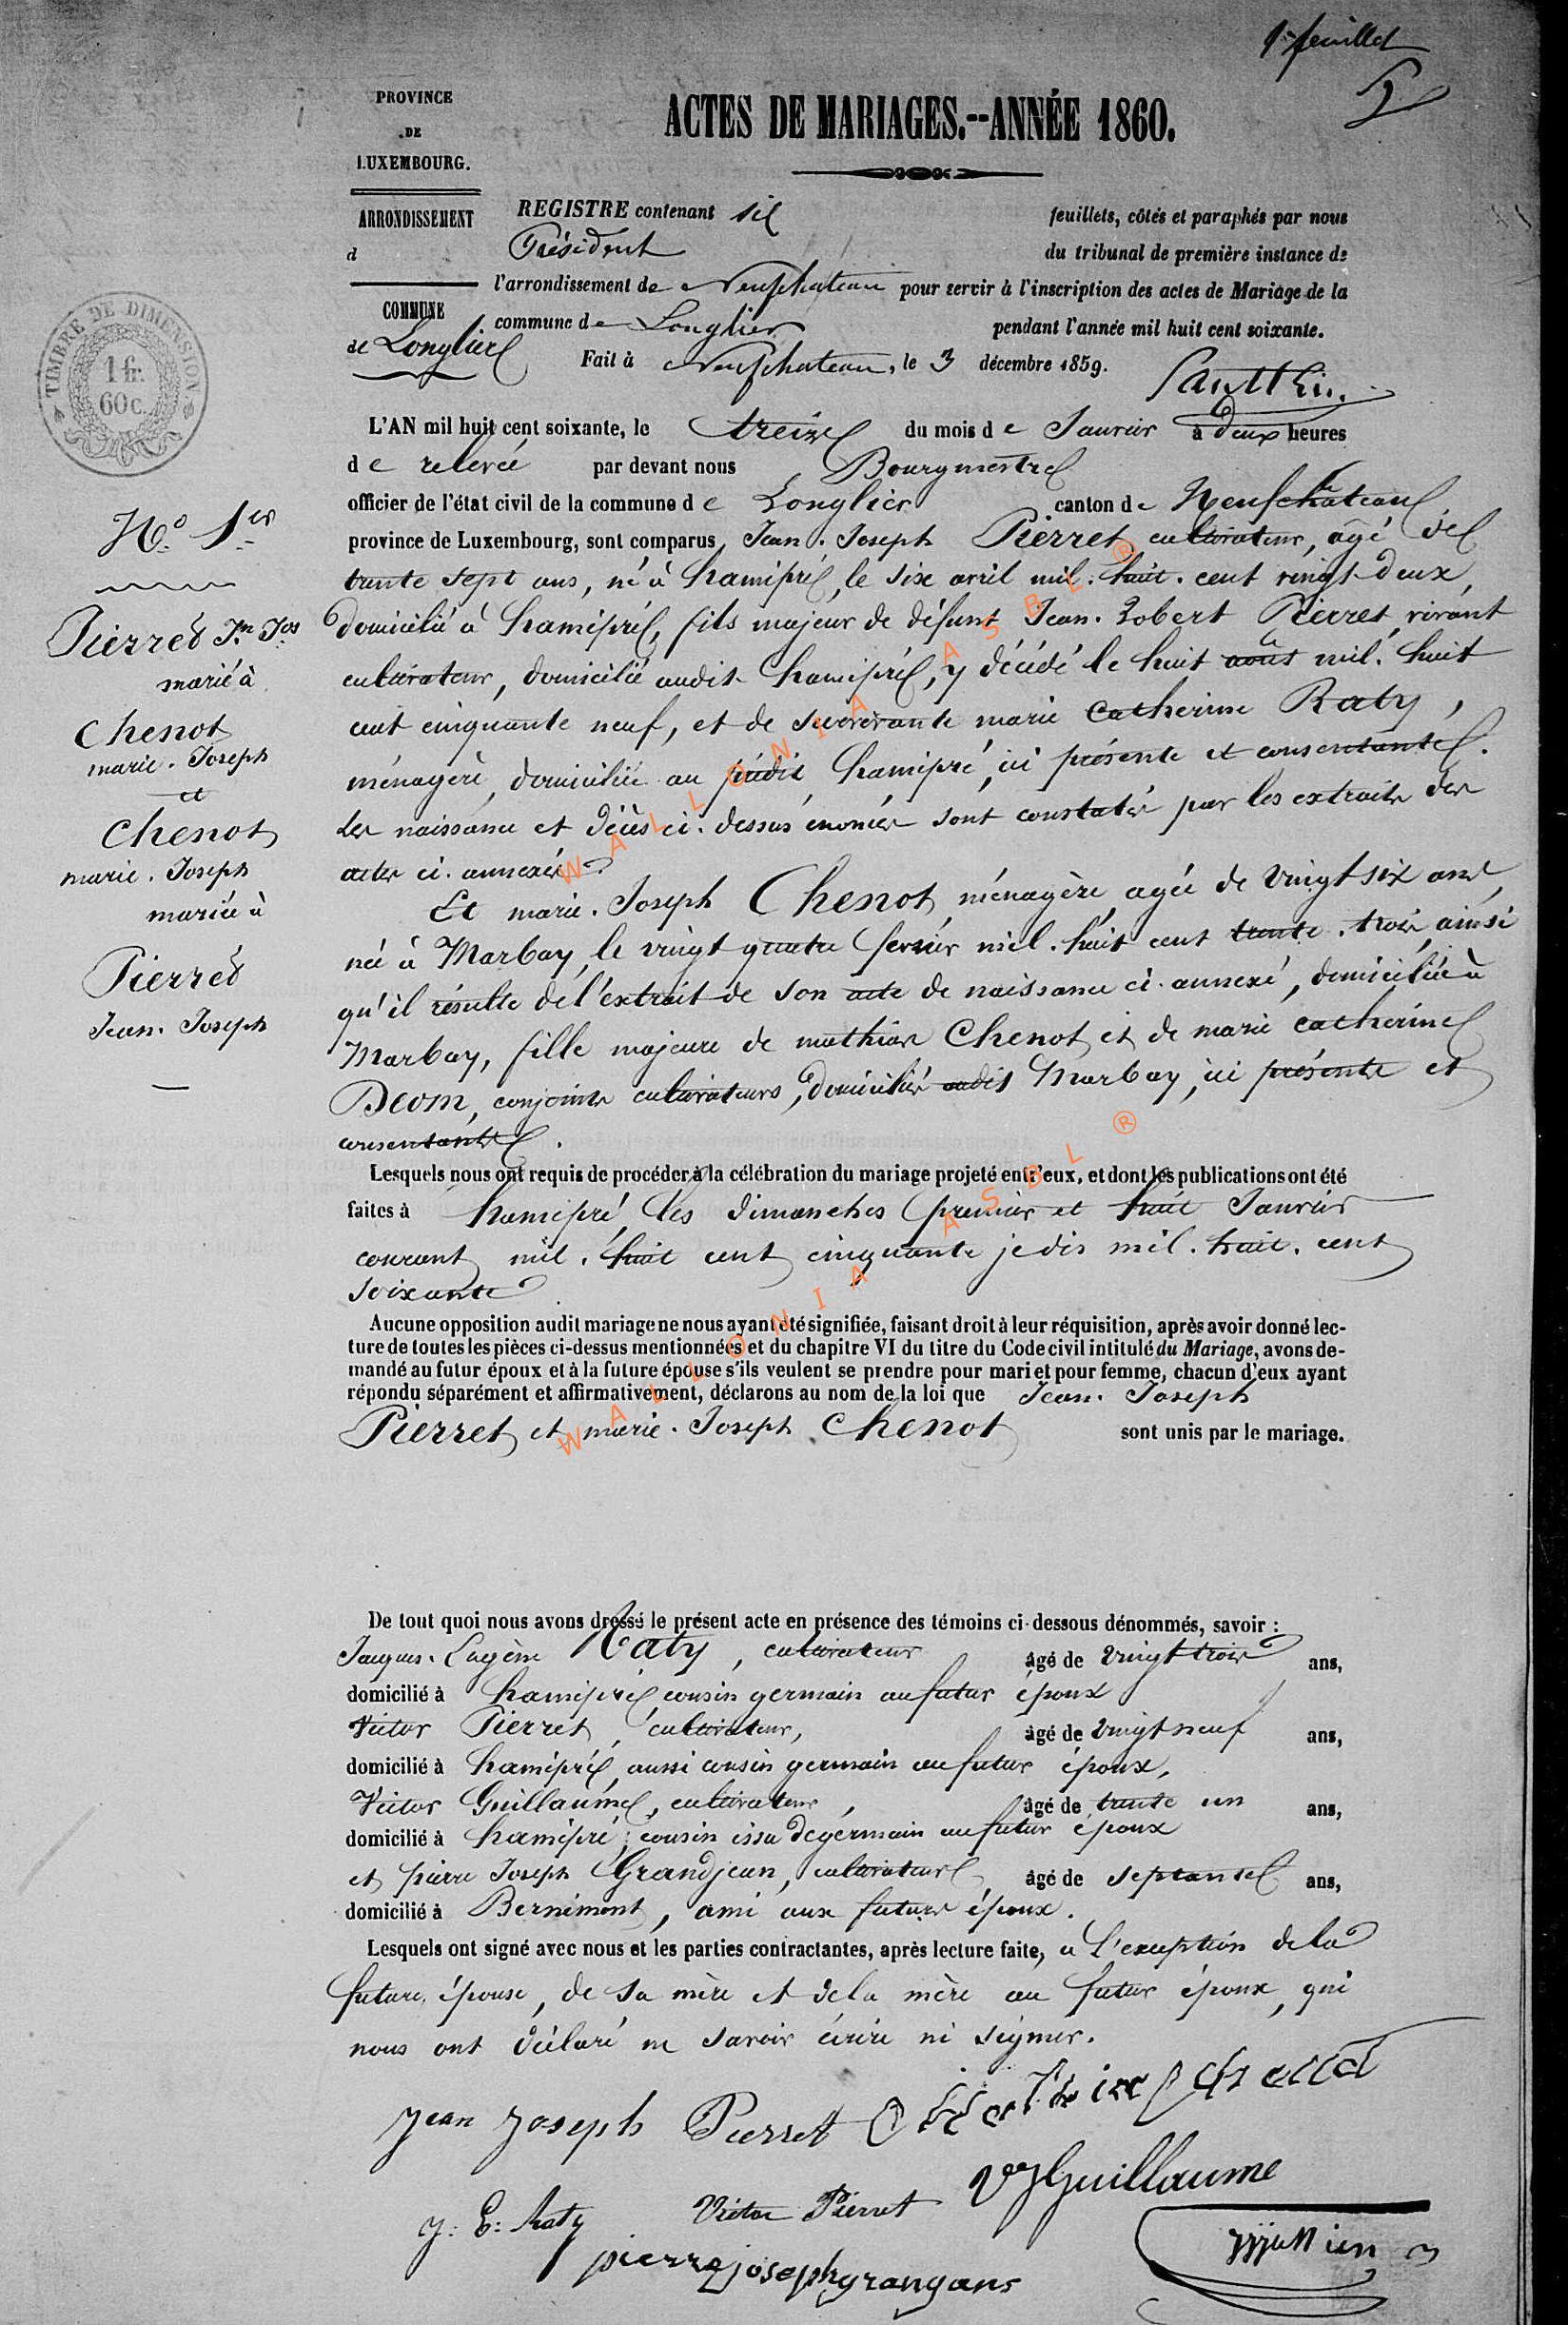 1er feuillet
PROVINCE
DE
LUXEMBOURG.
ACTES DE MARIAGES.--ANNÉE 1860.
ARRONDISSEMENT
d
COMMUNE
de Longlier
REGISTRE contenant six feuillets, côtés et paraphés par nous
Président du tribunal de première instance de
l'arrondissement de Neufchateau pour servir à l'inscription des actes de Mariage de la
commune de Longlier pendant l'année mil huit cent soixante.
Fait à Neufchateau, le 3 décembre 1859.
TIMBRE DE DIMENSION
1 fr.
60 c.
L'AN mil huit cent soixante, le treize du mois de Janvier à deux heures
de relevée par devant nous Bourgmestre
officier de l'état civil de la commune de Longlier canton de Neufchâteau
province de Luxembourg, sont comparus, Jean. Joseph Pierret, cultivateur, âgé de
trente sept ans, né à hamipré, le six avril mil. huit. cent vingt-deux,
domicilié à hamipré, fils majeur de défunt Jean. Robert Pierret, vivant
cultivateur, domicilié audit hamipré, y décédé le huit août mil. huit
cent cinquante neuf, et de survivante marie Catherine Raty,
ménagère, domiciliée au prédit hamipré, ici présente et consentante.
Les naissance et décès ci. dessus énoncés sont constatés par les extraits des
actes ci. annexés
Et marie. Joseph Chenot, ménagère, agée de vingt six ans,
née à Marbay, le vingt quatre fevrier mil. huit cent trente. trois, ainsi
qu'il résulte de l'extrait de son acte de naissance ci. annexé, domiciliée à
Marbay, fille majeure de mathias Chenot et de marie catherine
Deom, conjoints cultivateurs, domiciliés audit Marbay, ici présents et
consentants.
N° 1er
Pierret Jn Jos
marié à
Chenot
marie. Joseph
et
Chenot
marie. Joseph
mariée à
Pierret
Jean. Joseph
Lesquels nous ont requis de procéder à la célébration du mariage projeté entr'eux, et dont les publications ont été
faites à hamipré, les dimanches premier et huit Janvier
courant mil. huit cent cinquante je dis mil. huit. cent
soixante
Aucune opposition audit mariage ne nous ayant été signifiée, faisant droit à leur réquisition, après avoir donné lec-
ture de toutes les pièces ci-dessus mentionnées et du chapitre VI du titre du Code civil intitulé du Mariage, avons de-
mandé au futur époux et à la future épouse s'ils veulent se prendre pour mari et pour femme, chacun d'eux ayant
répondu séparément et affirmativement, déclarons au nom de la loi que Jean. Joseph
Pierret et marie. Joseph Chenot sont unis par le mariage.
De tout quoi nous avons dressé le présent acte en présence des témoins ci-dessous dénommés, savoir :
Jacques. Eugène Raty, cultivateur âgé de vingt trois ans,
domicilié à hamipré cousin germain au futur époux
Victor Pierret, cultivateur, âgé de vingt neuf ans,
domicilié à hamipré, aussi cousin germain au futur époux,
Victor Guillaume, cultivateur, âgé de trente un ans,
domicilié à hamipré, cousin issu de germain au futur époux
et pierre Joseph Grandjean, cultivateur, âgé de septante ans,
domicilié à Bernimont, ami aux futurs époux.
Lesquels ont signé avec nous et les parties contractantes, après lecture faite, a l'exception de la
future épouse, de sa mère et de la mère au futur époux, qui
nous ont déclaré ne savoir écrire ni signer.
Jean Joseph Pierret
VJ Guillaume
J: E: Raty
Victor Pierret
pierre joseph grangans
WALLONIA ASBL ®
WALLONIA ASBL ®